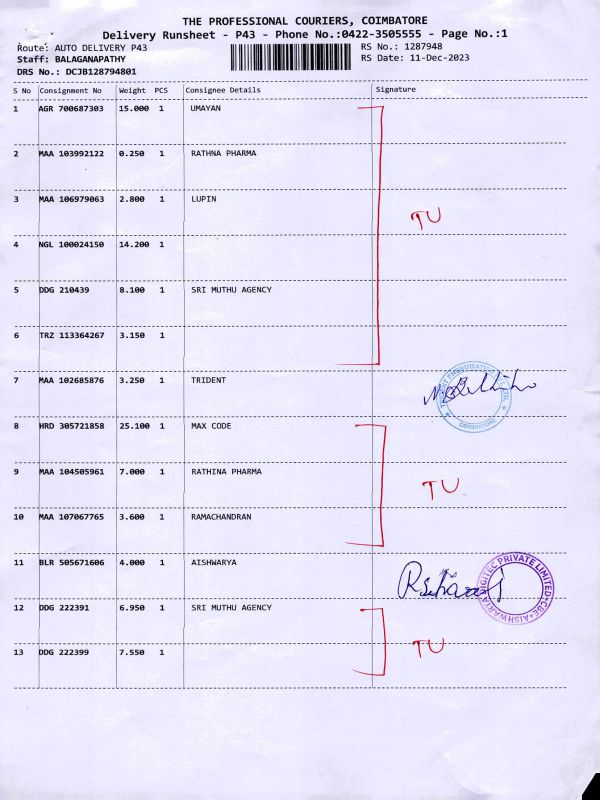 THE PROFESSIONAL COURIERS, COIMBATORE
Delivery Runsheet - P43 - Phone No.:0422-3505555 - Page No.:1
Route: AUTO DELIVERY P43 RS No.: 1287948
Staff: BALAGANAPATHY RS Date: 11-Dec-2023
DRS No.: DCJB128794801
S No Consignment No Weight PCS Consignee Details Signature
1 AGR 700687303 15.000 1 UMAYAN
2 MAA 103992122 0.250 1 RATHNA PHARMA
3 MAA 106979063 2.800 1 LUPIN
TU
4 NGL 100024150 14.200 1
5 DDG 210439 8.100 1 SRI MUTHU AGENCY
6 TRZ 113364267 3.150 1
7 MAA 102685876 3.250 1 TRIDENT
COIMBATORE
8 HRD 305721858 25.100 1 MAX CODE
9 MAA 104505961 7.000 1 RATHINA PHARMA
TU
10 MAA 107067765 3.600 1 RAMACHANDRAN
11 BLR 505671606 4.000 1 AISHWARYA
AISHWARYA DIGITEC PRIVATE LIMITED CBE
12 DDG 222391 6.950 1 SRI MUTHU AGENCY
13 DDG 222399 7.550 1
TU